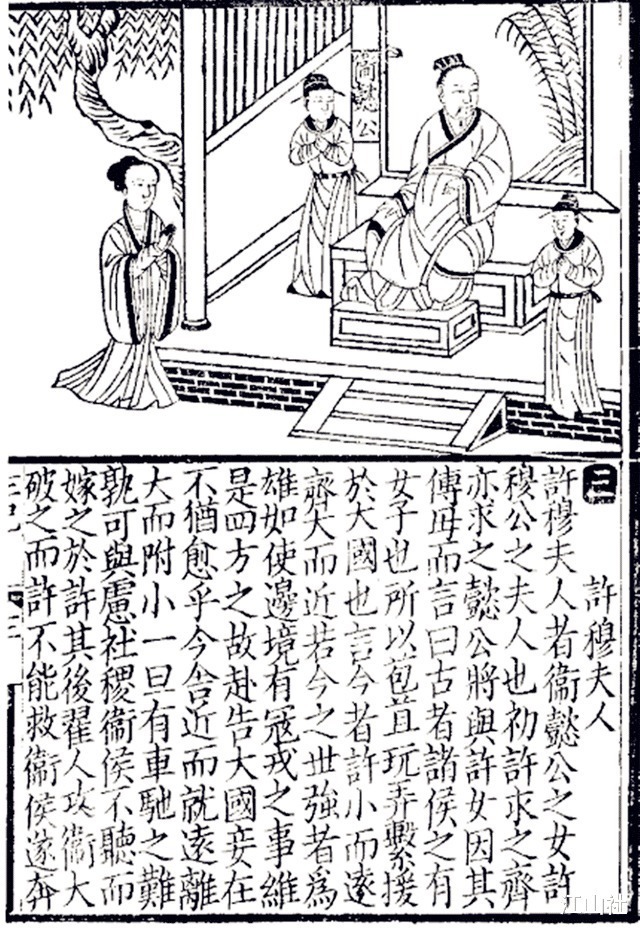 衛懿公
三
許穆夫人
許穆夫人者衛懿公之女許
穆公之夫人也初許求之齊
亦求之懿公將與許女因其
傅母而言曰古者諸侯之有
女子也所以苞苴玩弄繫援
於大國也言今者許小而遠
齊大而近若今之世強者爲
雄如使邊境有寇戎之事維
是四方之故赴告大國妾在
不猶愈乎今舍近而就遠離
大而附小一旦有車馳之難
孰可與慮社稷衛侯不聽而
嫁之於許其後翟人攻衛大
破之而許不能救衛侯遂奔